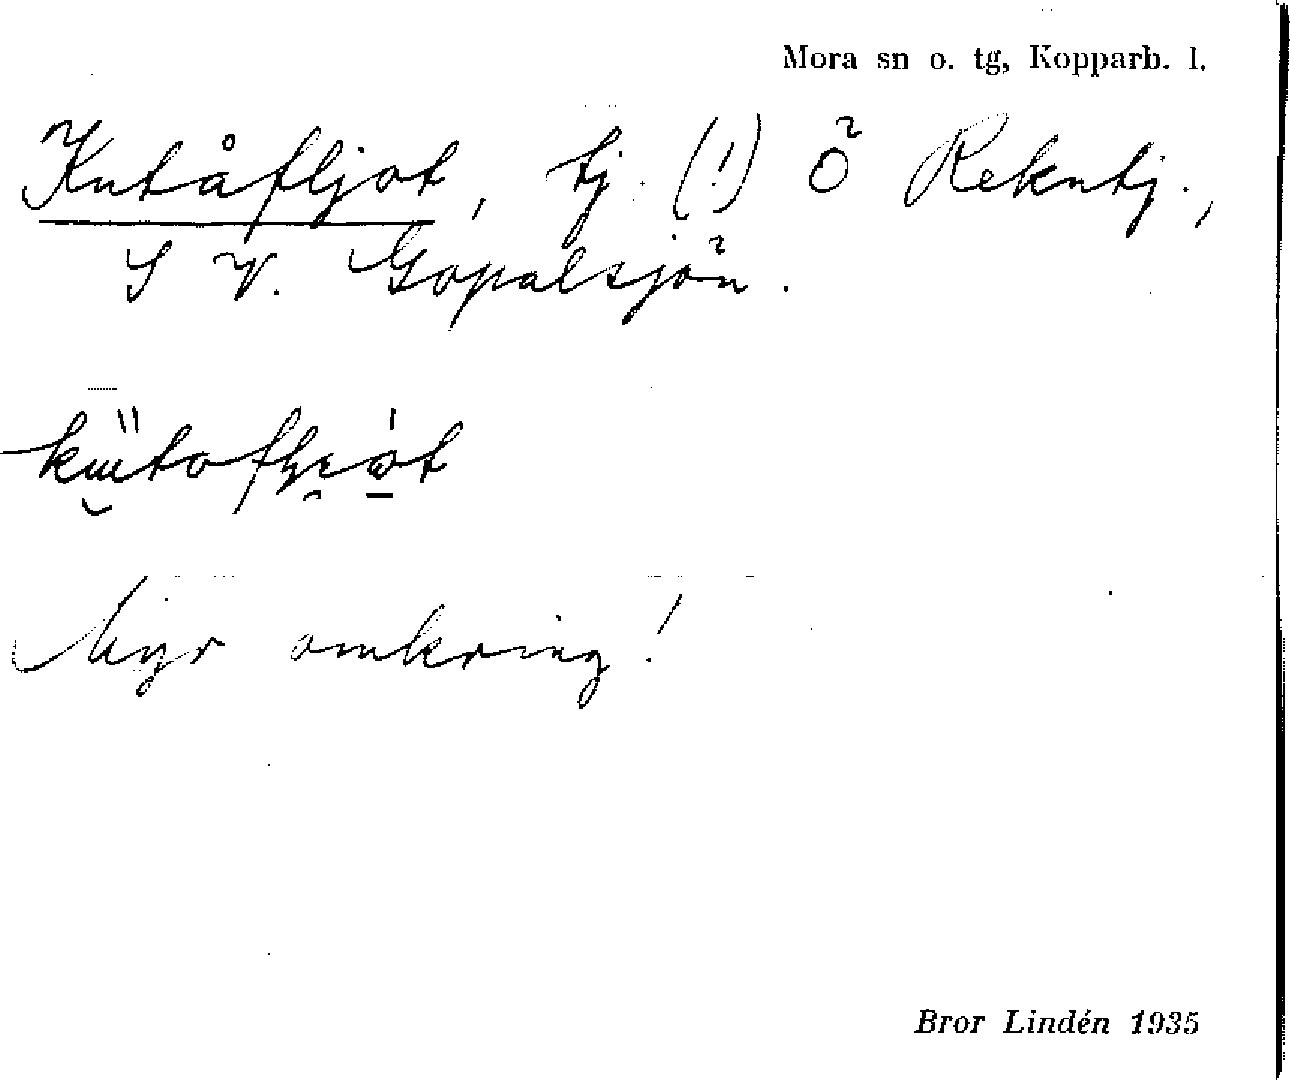 Mora sn o. tg, Kopparb. l.
Kutåfljot, tj. (!) Ö Rekntj.,
S V. Gopalsjön.
Myr omkring!
Bror Lindén 1935